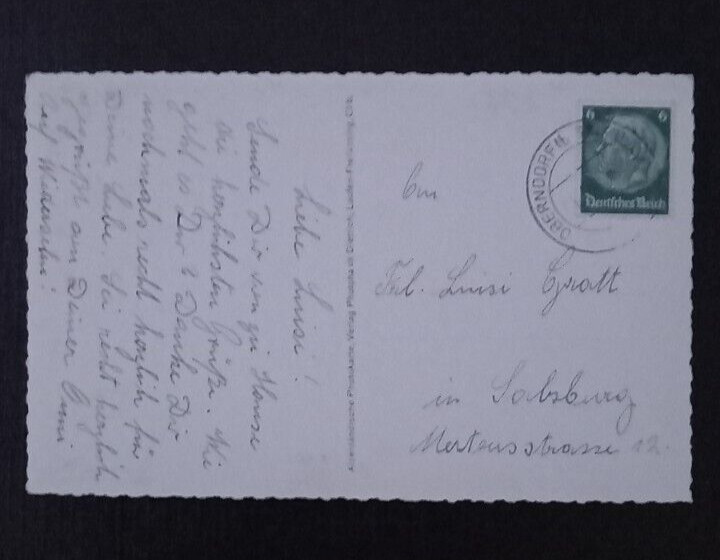 Liebe Luisi!
Sende Dir von zu Hause
die herzlichsten Grüße. Wie
geht es Dir? Danke Dir
nochmals recht herzlich für
Deine Liebe. Sei recht herzlich
gegrüßt von Deiner
Auf Wiedersehn!
6 6
Deutsches Reich
OBERNDORF
An
Frl. Luisi
in Salzburg
strasse 12.